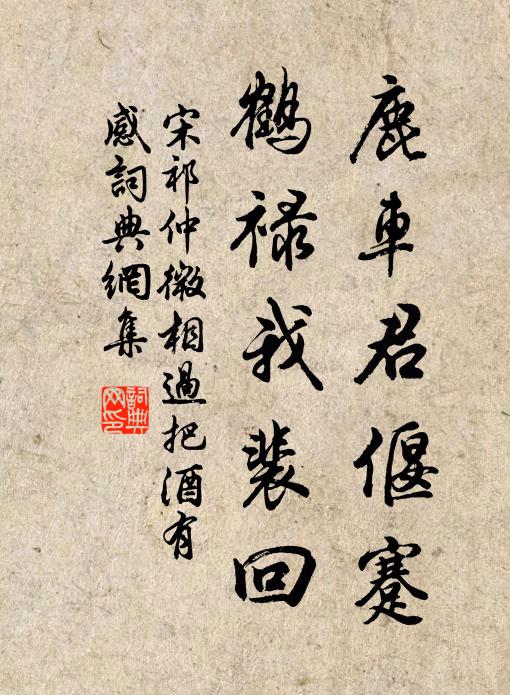 鹿車君偃蹇
鶴禄我裴回
宋祁仲微相過把酒有
感詞典網集
詞典
网印